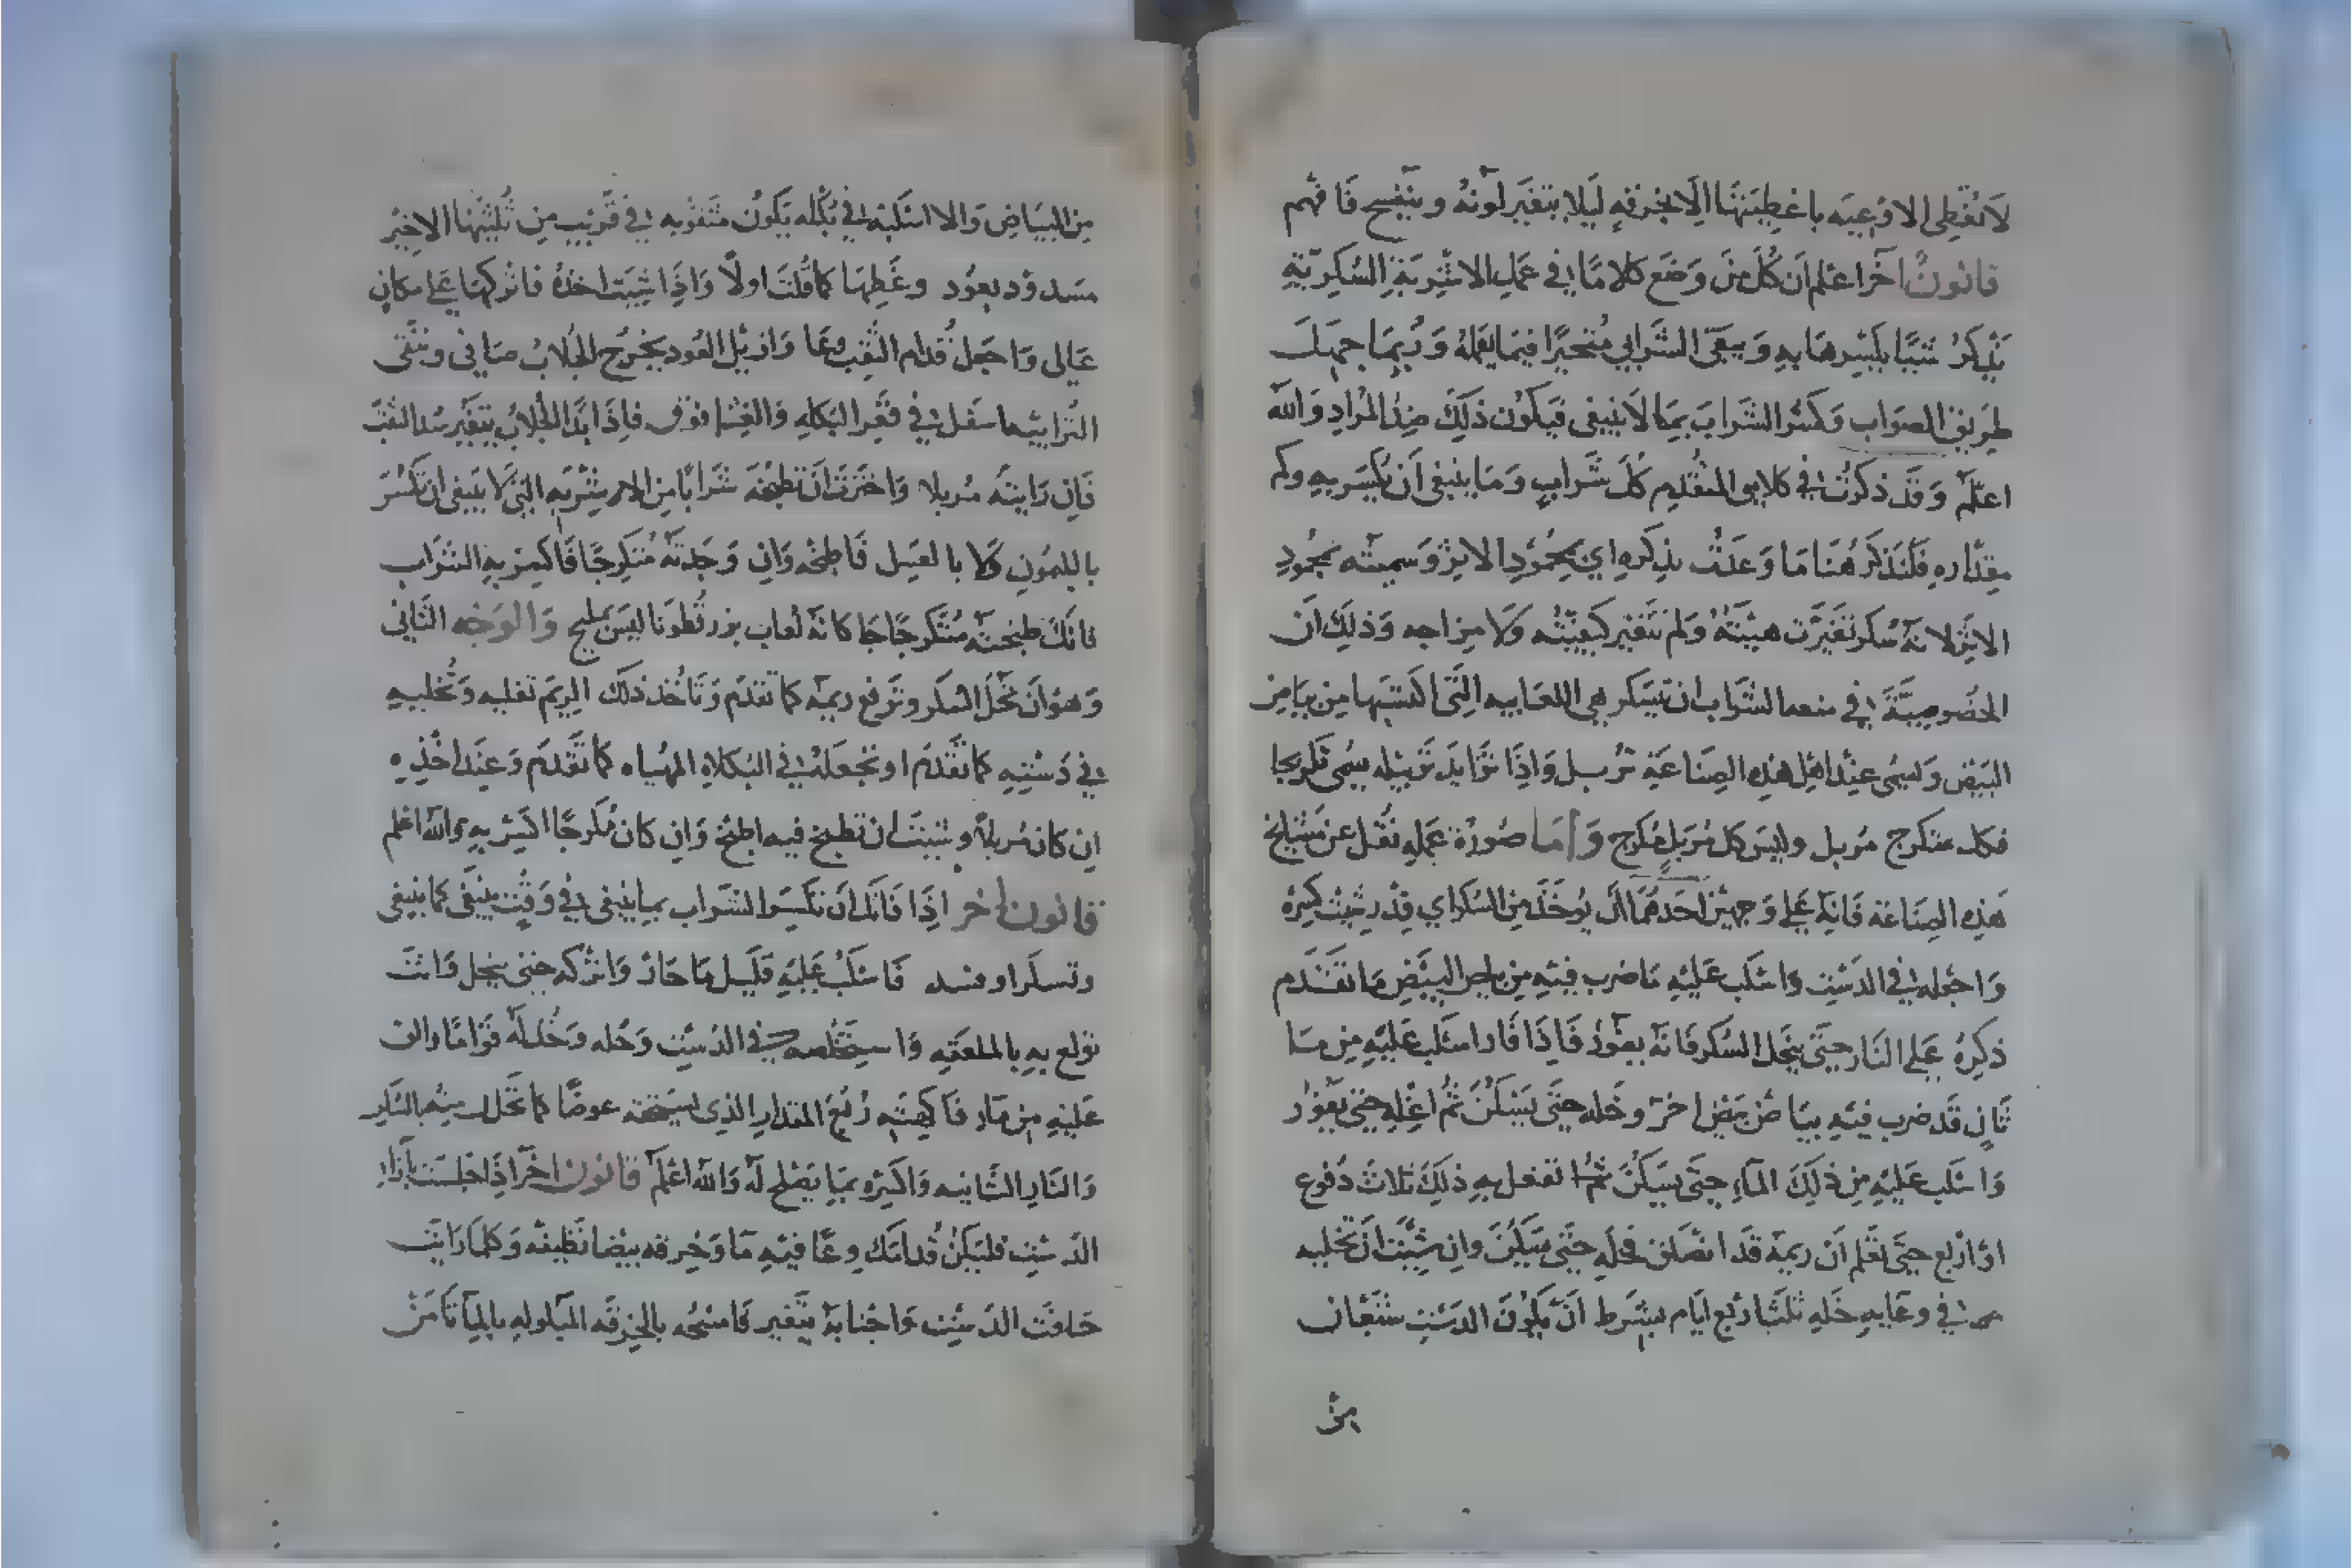 لا تغطى الاوعيه باغطيتها الا بخرقه ليلا يتغير لونه ويتفسح فافهم
قانون آخر اعلم ان كل من وضع كلاما في عمل الاشربة السكرية
يذكر شيا يكسرها به ويبقى الشرابي متحيرا فيما يعمله وربما جهل
طريق الصواب وكسر الشراب بما لا ينبغي فيكون ذلك ضد المراد والله
اعلم وقد ذكرت في كلامي المتقدم كل شراب وما ينبغي ان يكسر به وكم
مقداره فلنذكر هنا ما وعدت بذكره اي محمود الاثر وسميته محمود
الاثر لانه سكر تغيرت هيئته ولم تتغير كيفيته ولا مزاجه وذلك ان
الخصوصية في منعها الشراب ان تسكر هي اللعابيه التي اكتسبها من بياض
البيض وتسمى عند اهل هذه الصناعة تربل واذا تزايد تربيله يسمى تكريجا
فكل متكرج مربل وليس كل مربل مكرج واما صورة عمله نقل عن مشايخ
هذه الصناعة فانه على وجهين احدهما ان يوخذ من السكر اي قدر شيت كثره
واجعله في الدست واسكب عليه ما ضرب فيه من بياض البيض ما تقدم
ذكره على النار حتى ينحل السكر فانه يفور فاذا فار اسكب عليه من ما
ثان قد ضرب فيه بياض بيض اخر وخله حتى يسكن ثم اغله حتى يفور
واسكب عليه من ذلك الماء حتى يسكن ثم تفعل به ذلك ثلاث دفوع
او اربع حتى تعلم ان ريمه قد انصلق فخله حتى يسكن وان شيت ان تخليه
في وعايه خله ثلث اربع ايام بشرط ان يكون الدست شبعان
من
من البياض والا اسكبه في بكله يكون مثقوبه في قريب من ثلثها الاخير
مسدود بعود وغطها كما قلت اولا واذا شيت اخذه فاتركها على مكان
عالى واجعل قدام الثقب وعا وازيل العود يخرج الجلاب صافي ونقى
التراب يبقا سفل في قعر البكله والغثا فوق فاذا بدا الجلاب يتغير سد الثقب
فان رايته مربلا واخترت ان تطبخه شرابا من الاشربه التى لا ينبغي ان تكسر
بالليمون ولا بالعسل فاطبخه وان وجدته متكرجا فاكسر به الشراب
فانك طبخته متكرجا جا كانه لعاب بزر قطونا ليس مليح والوجه الثاني
وهو ان تحل السكر وترفع ريمه كما تقدم وتاخذ ذلك الريم تغليه وتخليه
في دستيه كما تقدم او تجعله في البكلاه المهياه كما تقدم وعند اخذه
ان كان مربلا وشيت ان تطبخ فيه اطبخ وان كان مكرجا اكسر به والله اعلم
قانون اخر اذا فاتك ان تكسر الشراب بما ينبغي في وقت ينبغي كما ينبغي
وتسكر او فسد فاسكب عليه قليل ما حار واتركه حتى ينحل وانت
تولع به بالملعقه واستخلصه في الدست وحله وخذ له قواما والق
عليه من ما فاكسيته ربع المقدار الذي يستحقه عوضا كما تحل منه بالسكر
والنار الثانيه واكسره بما يصلح له والله اعلم قانون اخر اذا جلست
الدست فليكن قدامك وعا فيه ما وخرقه بيضا نظيفه وكلما رايت
حافت الدست واجنابه يتغير فامسحه بالخرقه المبلوله بالما تامن